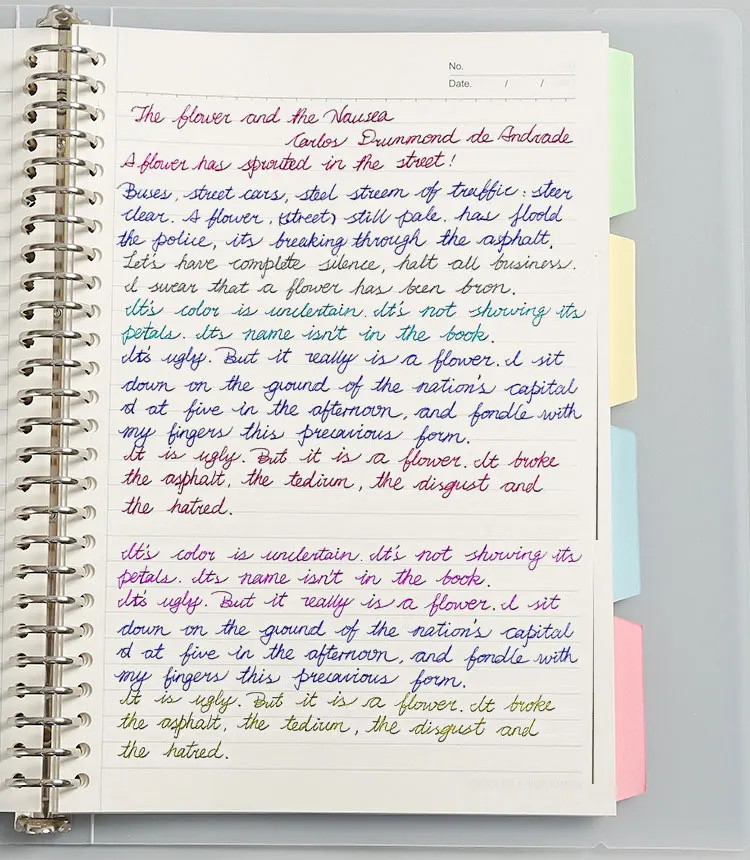 No.
Date. / /
The flower and the Nausea
Carlos Drummond de Andrade
A flower has sprouted in the street!
Buses, street cars, steel stream of traffic: steer
clear. A flower, (street) still pale. has floold
the police, its breaking through the asphalt.
Let's have complete silence, halt all business.
I swear that a flower has been bron.
It's color is undertain. It's not showing its
petals. Its name isn't in the book.
It's ugly. But it really is a flower. I sit
down on the ground of the nation's capital
d at five in the afternoon, and fondle with
my fingers this precavious form.
It is ugly. But it is a flower. It broke
the asphalt, the tedium, the disgust and
the hatred.
It's color is undertain. It's not showing its
petals. Its name isn't in the book.
It's ugly. But it really is a flower. I sit
down on the ground of the nation's capital
d at five in the afternoon, and fondle with
my fingers this precavious form.
It is ugly. But it is a flower. It broke
the asphalt, the tedium, the disgust and
the hatred.